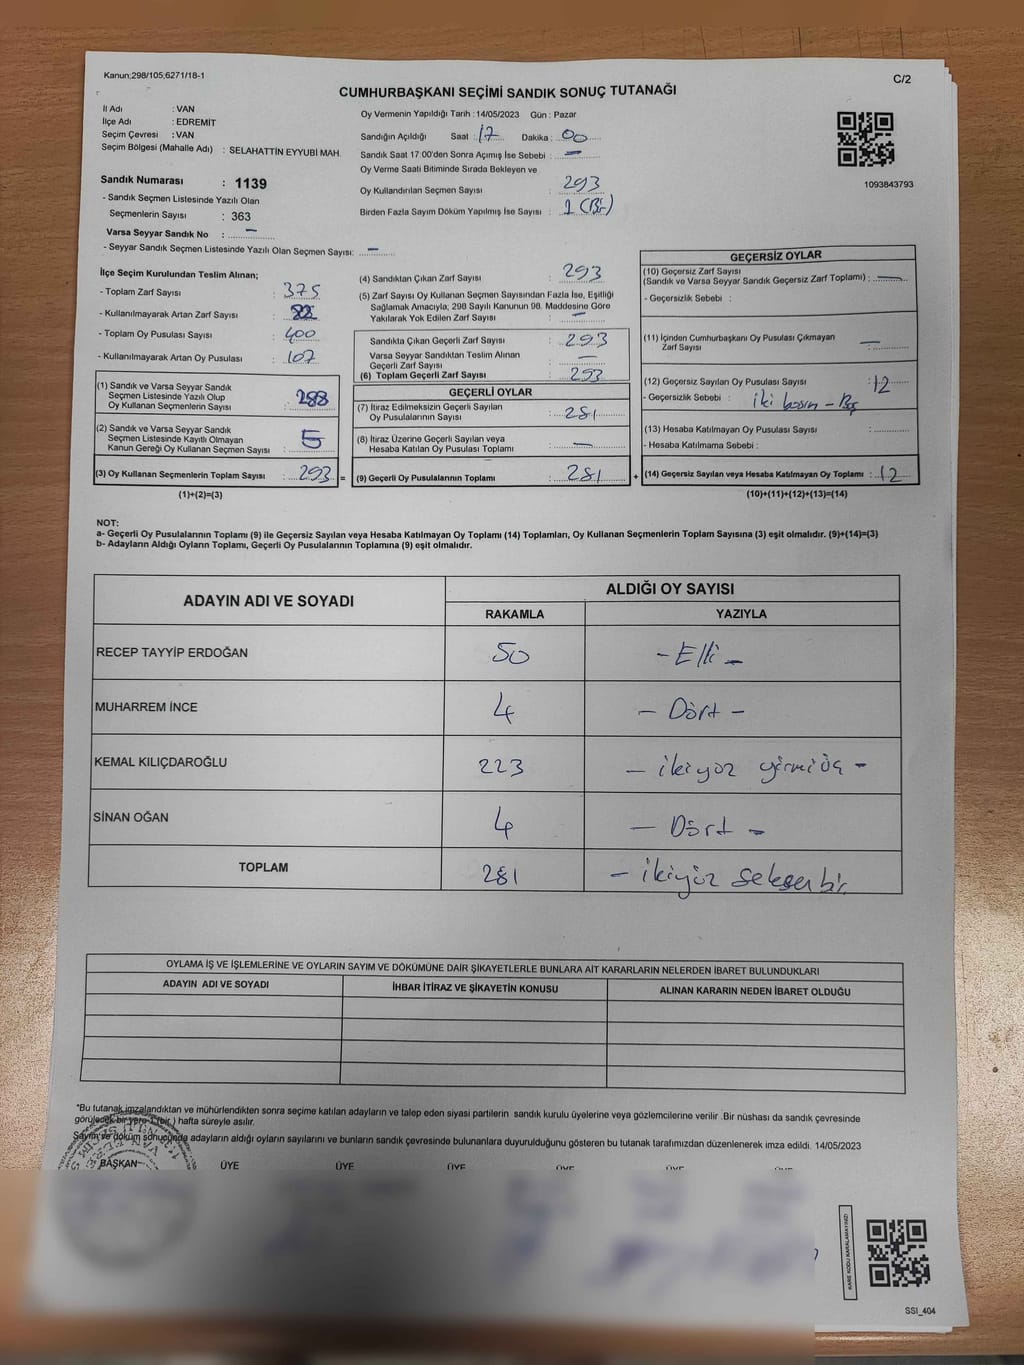 Kanun;298/105;6271/18-1
C/2
CUMHURBAŞKANI SEÇİMİ SANDIK SONUÇ TUTANAĞI
İl Adı : VAN
İlçe Adı : EDREMİT
Seçim Çevresi : VAN
Seçim Bölgesi (Mahalle Adı) : SELAHATTİN EYYUBİ MAH.
Oy Vermenin Yapıldığı Tarih : 14/05/2023 Gün : Pazar
Sandığın Açıldığı Saat : 17 Dakika : 00
Sandık Saat 17:00'den Sonra Açımış İse Sebebi : —
Oy Verme Saati Bitiminde Sırada Bekleyen ve
Oy Kullandırılan Seçmen Sayısı : 293
Birden Fazla Sayım Döküm Yapılmış İse Sayısı : 1 (Bir)
1093843793
Sandık Numarası : 1139
- Sandık Seçmen Listesinde Yazılı Olan
Seçmenlerin Sayısı : 363
Varsa Seyyar Sandık No : —
- Seyyar Sandık Seçmen Listesinde Yazılı Olan Seçmen Sayısı: —
İlçe Seçim Kurulundan Teslim Alınan;
- Toplam Zarf Sayısı : 375
- Kullanılmayarak Artan Zarf Sayısı : 82
- Toplam Oy Pusulası Sayısı : 400
- Kullanılmayarak Artan Oy Pusulası : 107
(1) Sandık ve Varsa Seyyar Sandık
Seçmen Listesinde Yazılı Olup
Oy Kullanan Seçmenlerin Sayısı : 288
(2) Sandık ve Varsa Seyyar Sandık
Seçmen Listesinde Kayıtlı Olmayan
Kanun Gereği Oy Kullanan Seçmen Sayısı : 5
(3) Oy Kullanan Seçmenlerin Toplam Sayısı : 293 =
(1)+(2)=(3)
(4) Sandıktan Çıkan Zarf Sayısı : 293
(5) Zarf Sayısı Oy Kullanan Seçmen Sayısından Fazla İse, Eşitliği
Sağlamak Amacıyla, 298 Sayılı Kanunun 98. Maddesine Göre
Yakılarak Yok Edilen Zarf Sayısı : —
Sandıkta Çıkan Geçerli Zarf Sayısı : 293
Varsa Seyyar Sandıktan Teslim Alınan
Geçerli Zarf Sayısı : —
(6) Toplam Geçerli Zarf Sayısı : 293
GEÇERLİ OYLAR
(7) İtiraz Edilmeksizin Geçerli Sayılan
Oy Pusulalarının Sayısı : 281
(8) İtiraz Üzerine Geçerli Sayılan veya
Hesaba Katılan Oy Pusulası Toplamı : —
(9) Geçerli Oy Pusulalarının Toplamı : 281 +
GEÇERSİZ OYLAR
(10) Geçersiz Zarf Sayısı
(Sandık ve Varsa Seyyar Sandık Geçersiz Zarf Toplamı) : —
- Geçersizlik Sebebi :
(11) İçinden Cumhurbaşkanı Oy Pusulası Çıkmayan
Zarf Sayısı : —
(12) Geçersiz Sayılan Oy Pusulası Sayısı : 12
- Geçersizlik Sebebi : iki basın - Boş
(13) Hesaba Katılmayan Oy Pusulası Sayısı :
- Hesaba Katılmama Sebebi :
(14) Geçersiz Sayılan veya Hesaba Katılmayan Oy Toplamı : 12
(10)+(11)+(12)+(13)=(14)
NOT:
a- Geçerli Oy Pusulalarının Toplamı (9) ile Geçersiz Sayılan veya Hesaba Katılmayan Oy Toplamı (14) Toplamları, Oy Kullanan Seçmenlerin Toplam Sayısına (3) eşit olmalıdır. (9)+(14)=(3)
b- Adayların Aldığı Oyların Toplamı, Geçerli Oy Pusulalarının Toplamına (9) eşit olmalıdır.
ADAYIN ADI VE SOYADI
ALDIĞI OY SAYISI
RAKAMLA YAZIYLA
RECEP TAYYİP ERDOĞAN 50 - Elli -
MUHARREM İNCE 4 - Dört -
KEMAL KILIÇDAROĞLU 223 - ikiyüz yirmi üç -
SİNAN OĞAN 4 - Dört -
TOPLAM 281 - ikiyüz seksenbir
OYLAMA İŞ VE İŞLEMLERİNE VE OYLARIN SAYIM VE DÖKÜMÜNE DAİR ŞİKAYETLERLE BUNLARA AİT KARARLARIN NELERDEN İBARET BULUNDUKLARI
ADAYIN ADI VE SOYADI İHBAR İTİRAZ VE ŞİKAYETİN KONUSU ALINAN KARARIN NEDEN İBARET OLDUĞU
*Bu tutanak imzalandıktan ve mühürlendikten sonra seçime katılan adayların ve talep eden siyasi partilerin sandık kurulu üyelerine veya gözlemcilerine verilir .Bir nüshası da sandık çevresinde
görülecek bir yere 1 (bir ) hafta süreyle asılır.
Sayım ve döküm sonucunda adayların aldığı oyların sayılarını ve bunların sandık çevresinde bulunanlara duyurulduğunu gösteren bu tutanak tarafımızdan düzenlenerek imza edildi. 14/05/2023
BAŞKAN ÜYE ÜYE ÜYE ÜYE ÜYE
KARE KODU KARALAMAYINIZ!
SSI_404